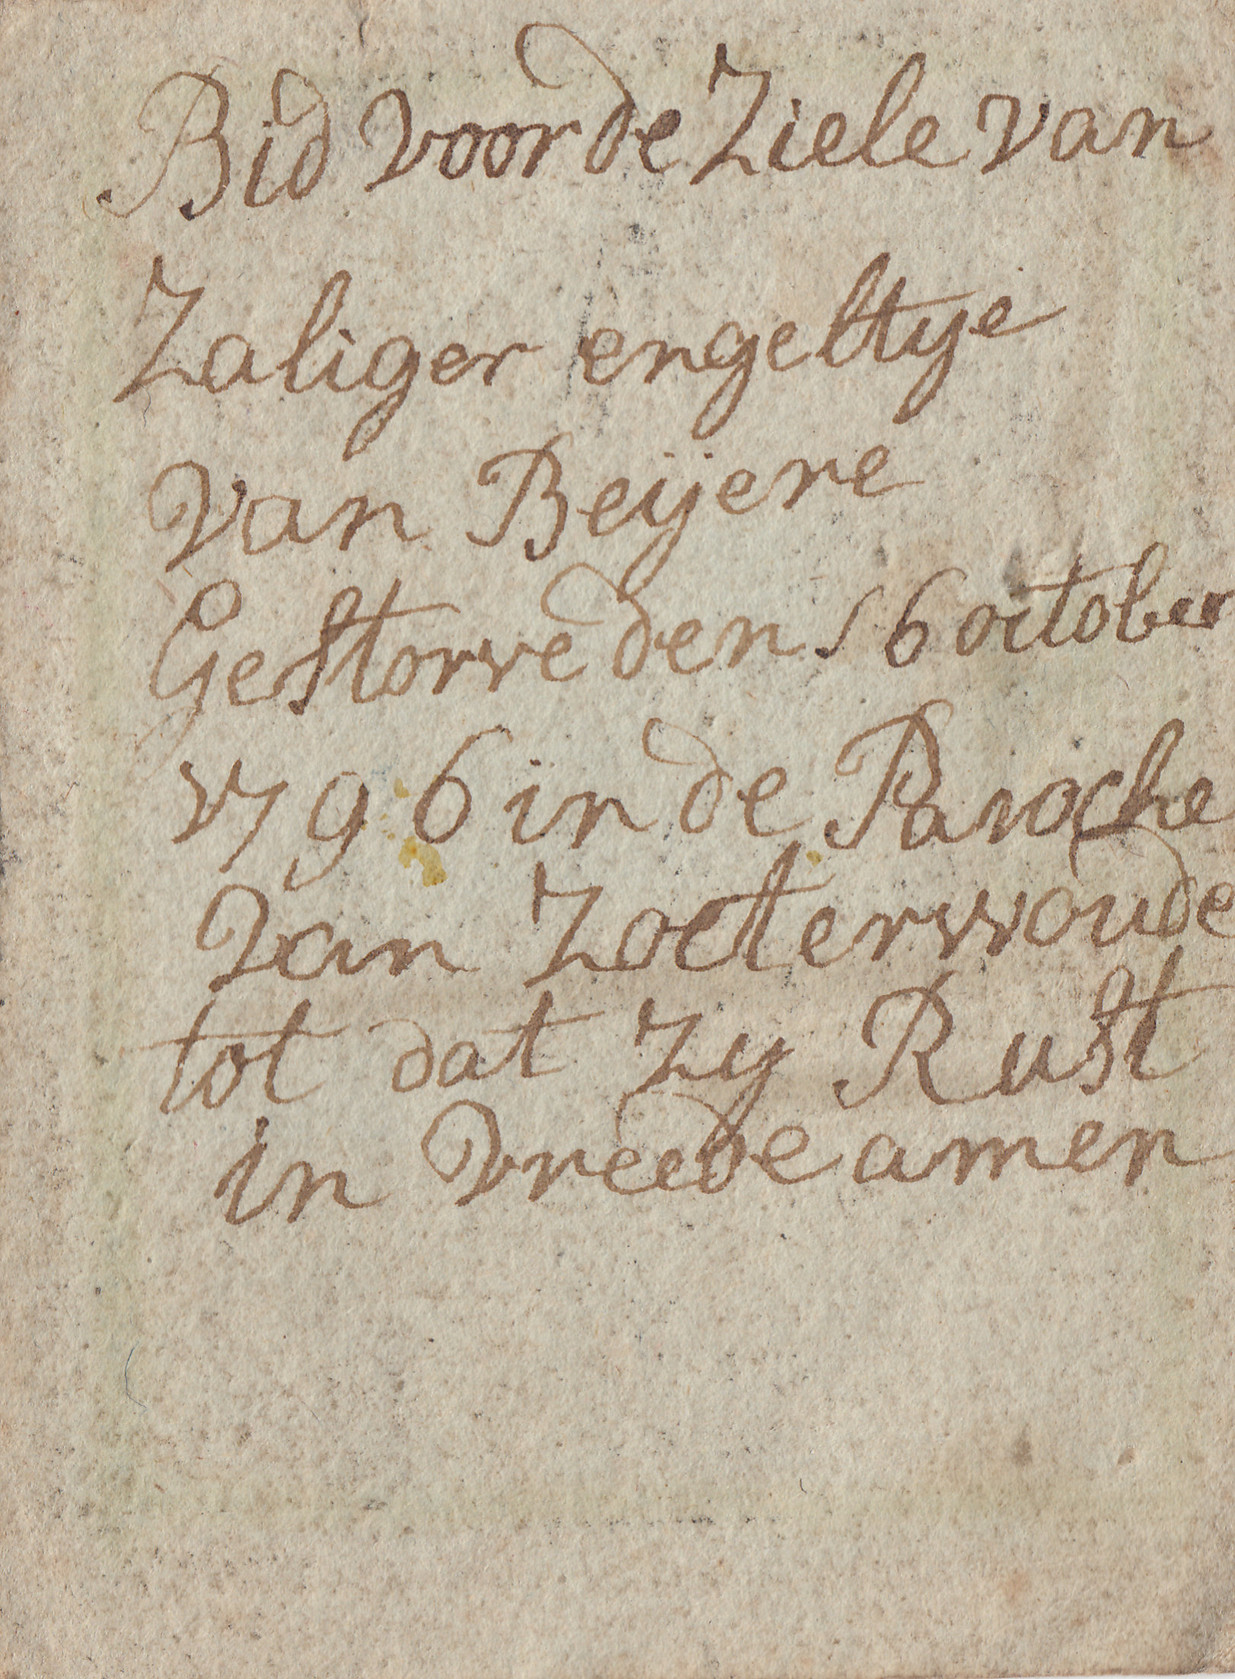 Bid voor de Ziele van
Zaliger engeltye
van Beijere
Gestorve den 16 october
1796 in de Paroche
van Zoeterwoude
tot dat zy Rust
in vreede amen